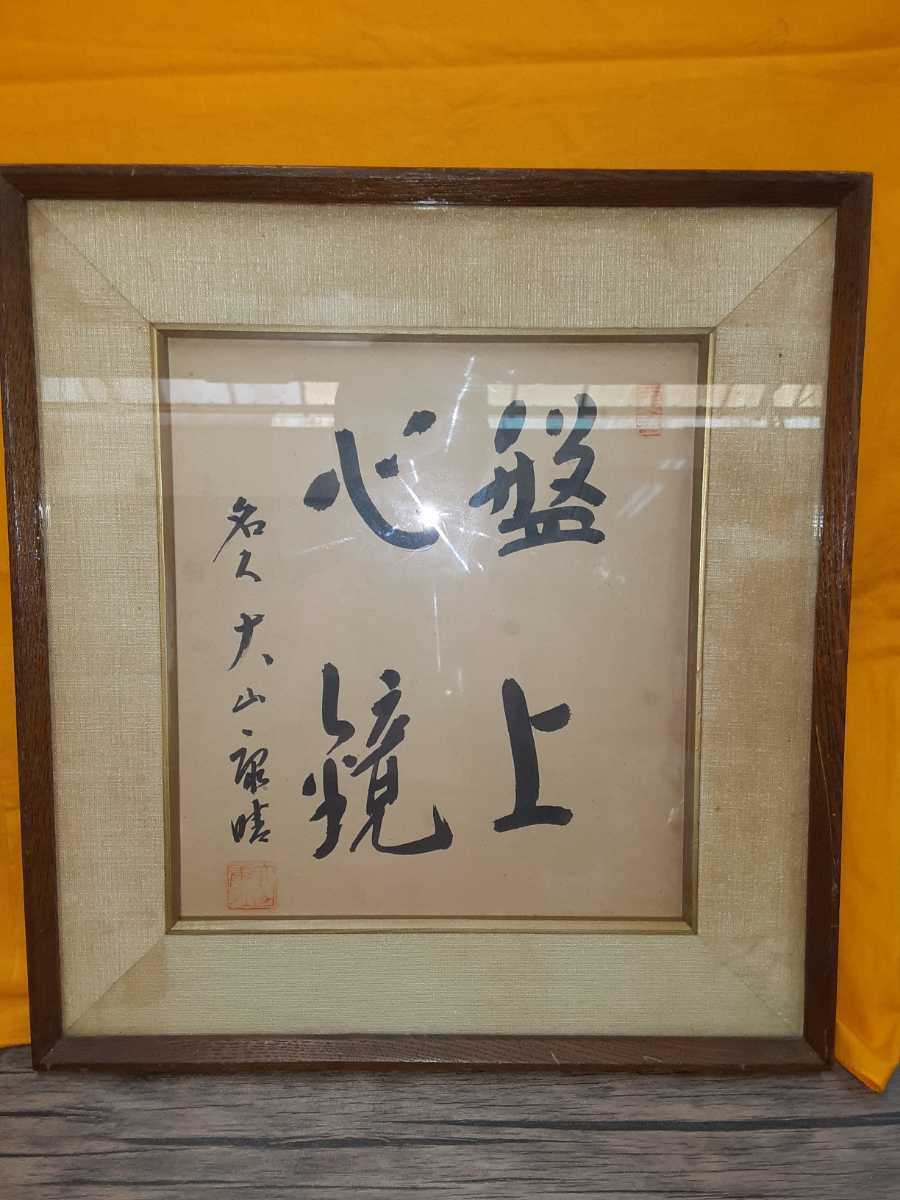 盤上
心鏡
名人 大山康晴